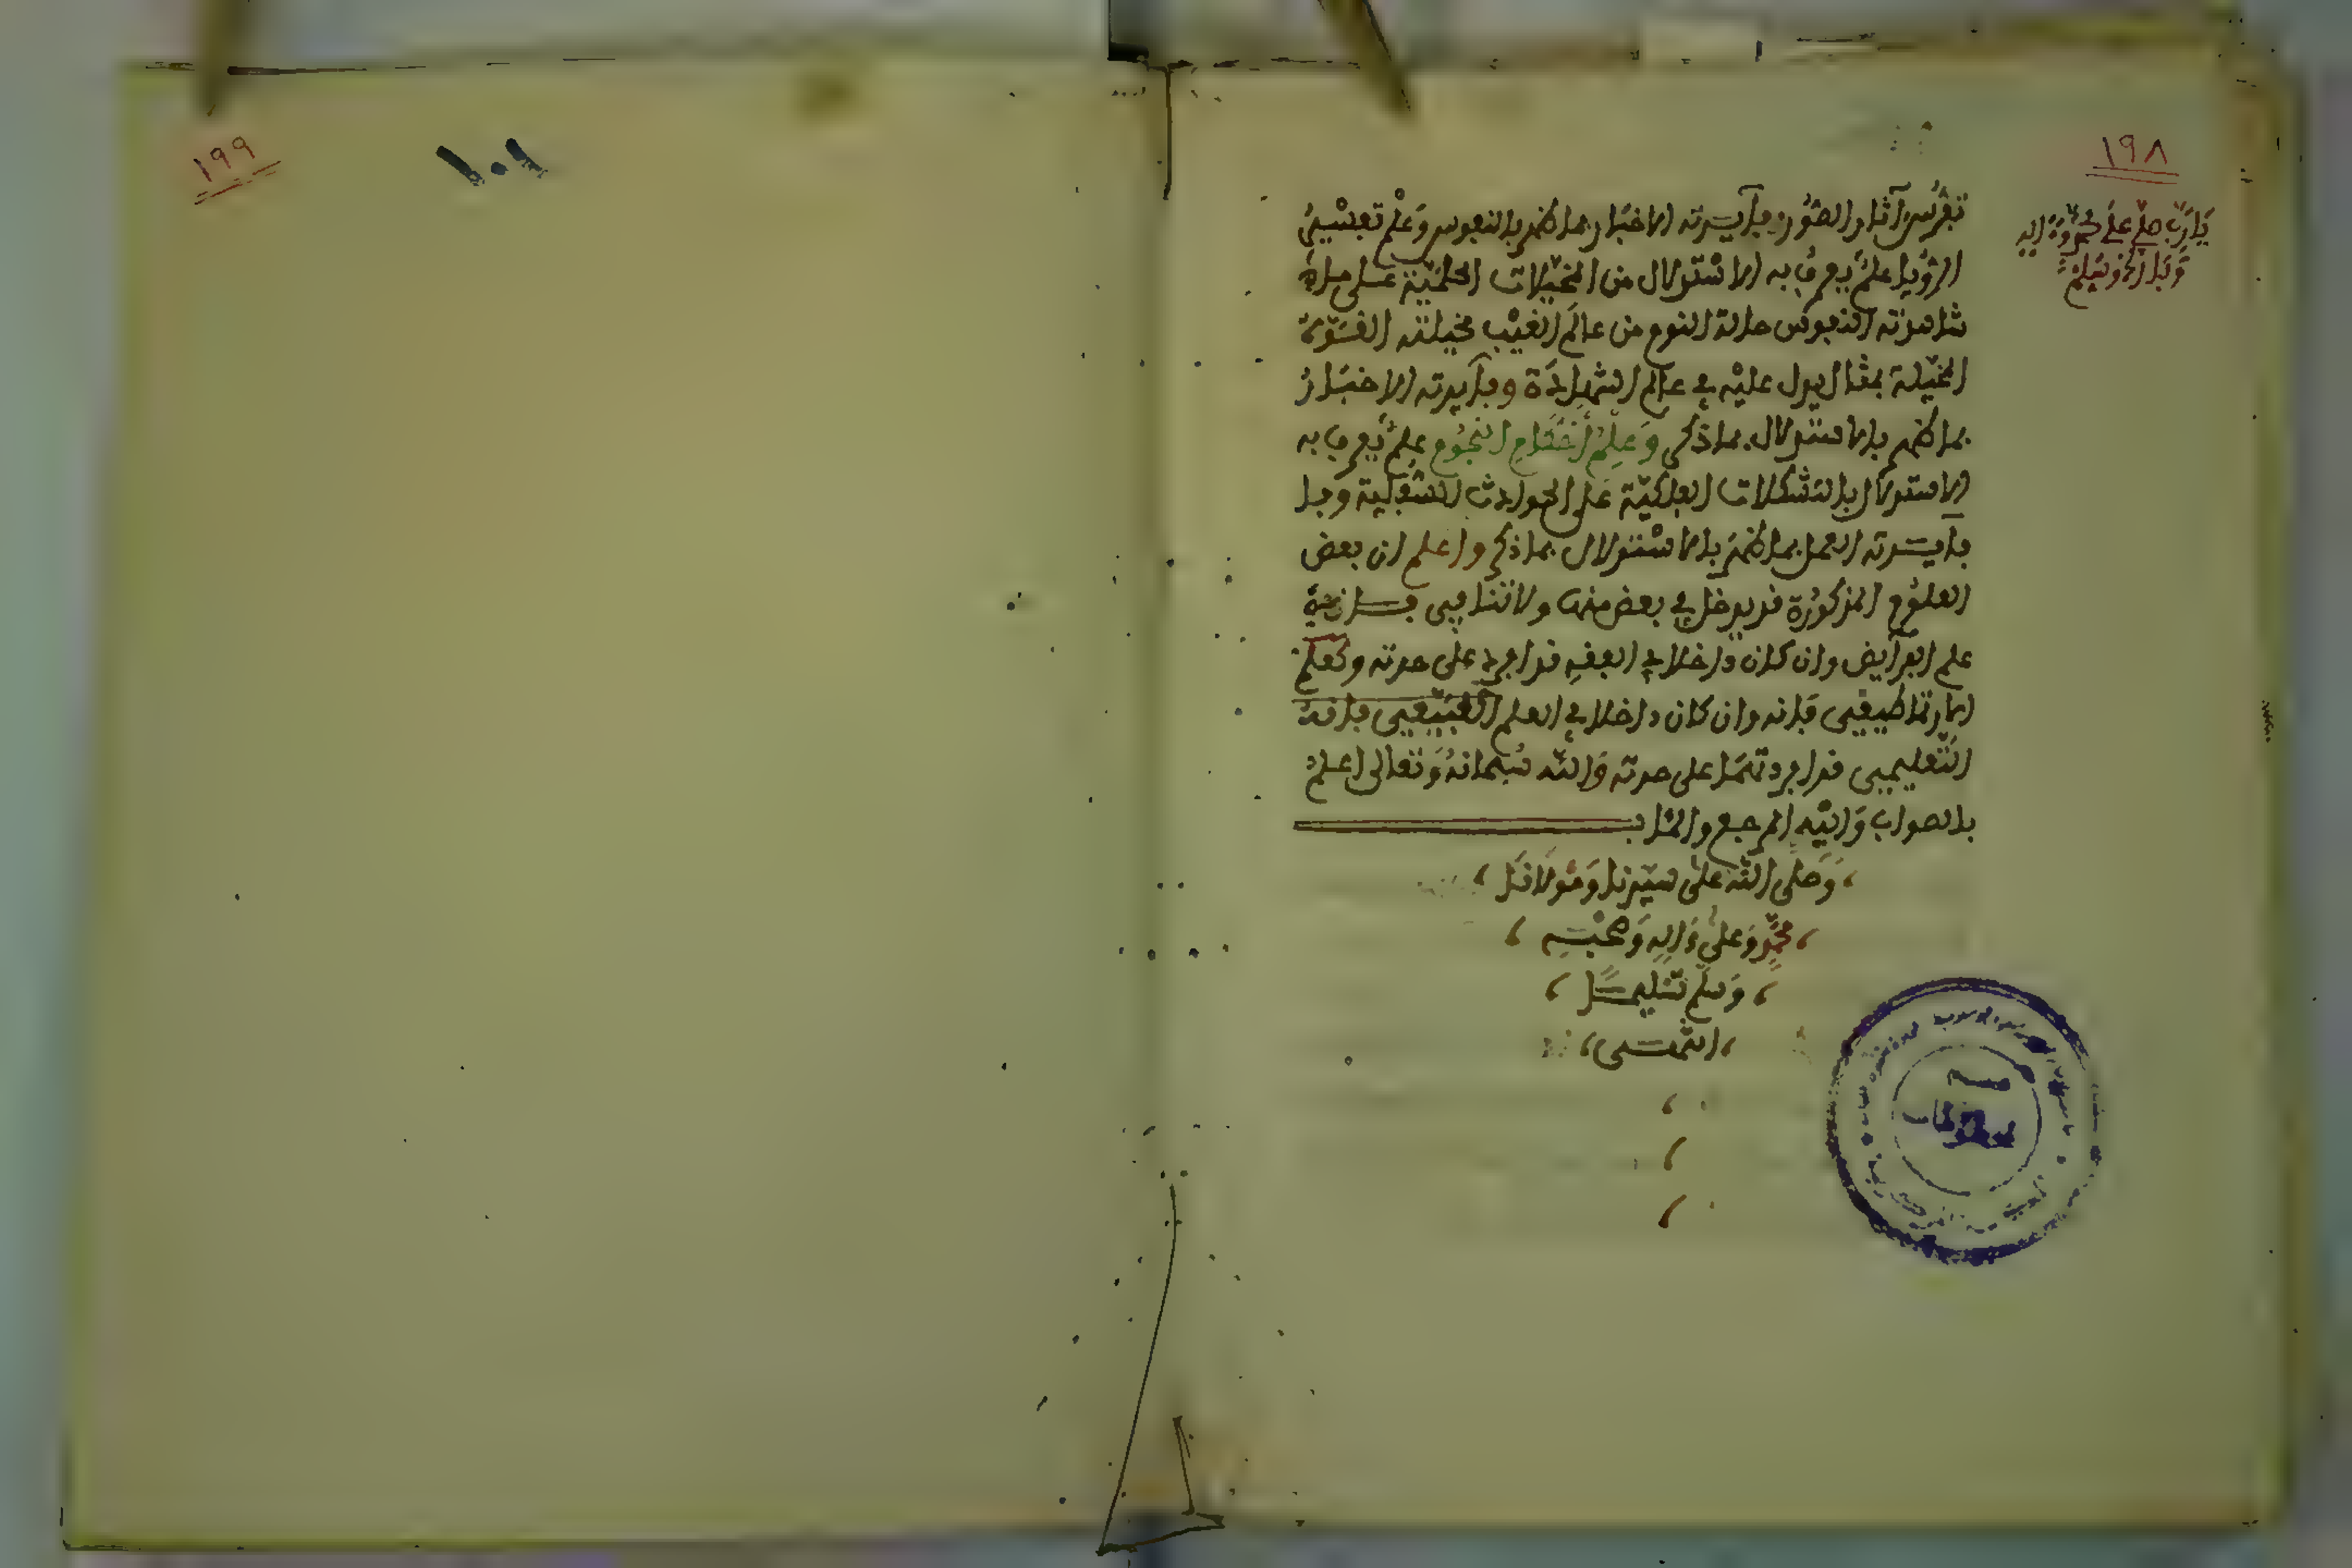 ١٩٨
يا رب صل على محمد وآله
وبارك وسلم
تفرس آثار الصور وفايدته الاخبار بما ظهر بالنفوس وعلم تعبير
الرؤيا علم يعرف به الاستدلال من المخيلات الحلمية على ما
شاهدته النفوس حالة النوم من عالم الغيب فخيلته القوة
المخيلة بمثال يدل عليه في عالم الشهادة وفايدته الاخبار
بما ظهر بالاستدلال بما ذكر وعلم احكام النجوم علم يعرف به
الاستدلال بالتشكلات الفلكية على الحوادث السفلية وفا
فايدته العمل بما ظهر بالاستدلال بما ذكر واعلم ان بعض
العلوم المذكورة قد يدخل في بعض منها ولا تنافي
علم الفرايض وان كان داخلا في الفقه قد افرد على حدته وكعلم
الارتماطيقي فانه وان كان داخلا في العلم فانه
التعليمي قد افرد على حدته والله سبحانه وتعالى اعلم
بالصواب واليه المرجع والمئاب
وصلى الله على سيدنا ومولانا
محمد وعلى وآله وصحبه
وسلم تسليما
انتهى
قسم
المخطوطات
١٩٩
١٠١